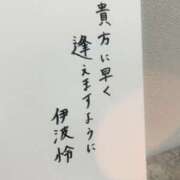 貴方に早く
逢えますように
伊波怜